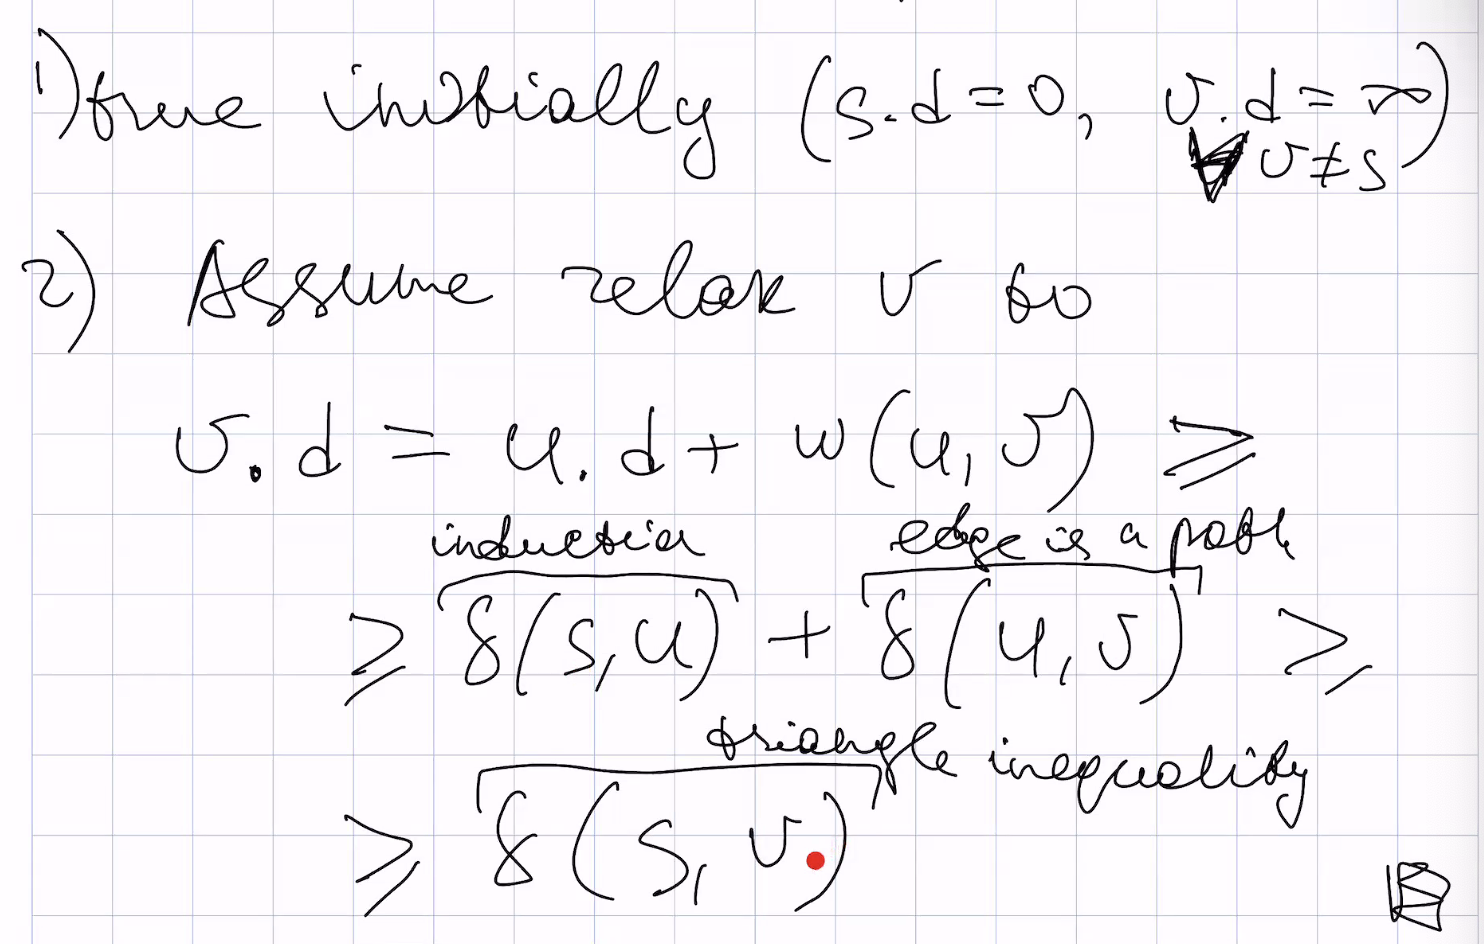 1) true initially (s.d = 0, v.d = ∞
∀ v ≠ s)
2) Assume relax v to
v.d = u.d + w(u, v) ≥
induction edge is a path
≥ δ(s, u) + δ(u, v) ≥
triangle inequality
≥ δ(s, v)